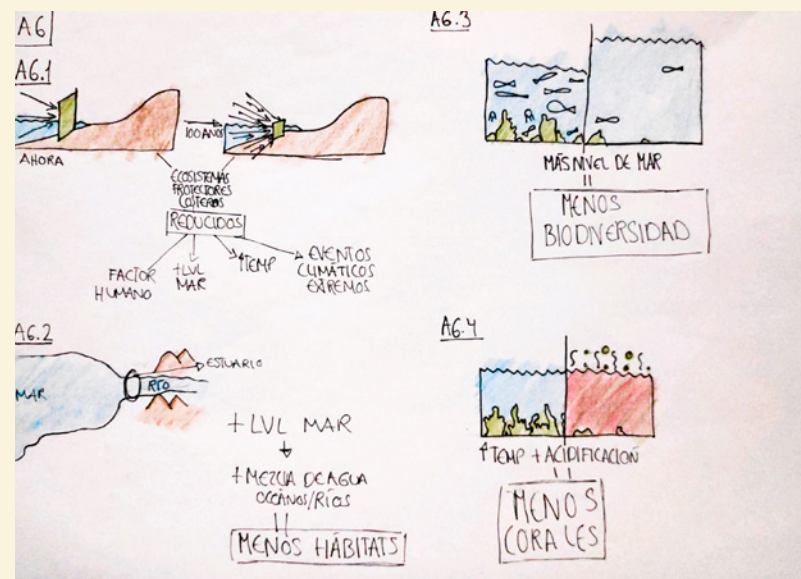 A6
A6.1
AHORA
100 AÑOS
ECOSISTEMAS
PROTECTORES
COSTEROS
REDUCIDOS
FACTOR
HUMANO
+LVL
MAR
↑TEMP
EVENTOS
CLIMÁTICOS
EXTREMOS
A6.2
MAR
RÍO
ESTUARIO
+ LVL MAR
+ MEZCLA DE AGUA
OCÉANOS/RÍOS
MENOS HÁBITATS
A6.3
MÁS NIVEL DE MAR
MENOS
BIODIVERSIDAD
A6.4
↑TEMP + ACIDIFICACIÓN
MENOS
CORALES